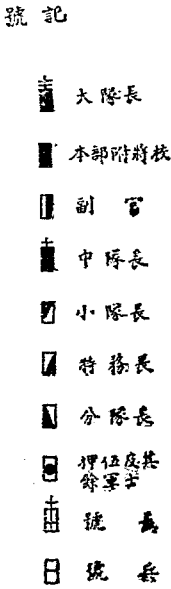 記號
大隊長
本部附將校
副官
中隊長
小隊長
特務長
分隊長
押伍及其
餘軍士
號長
號兵